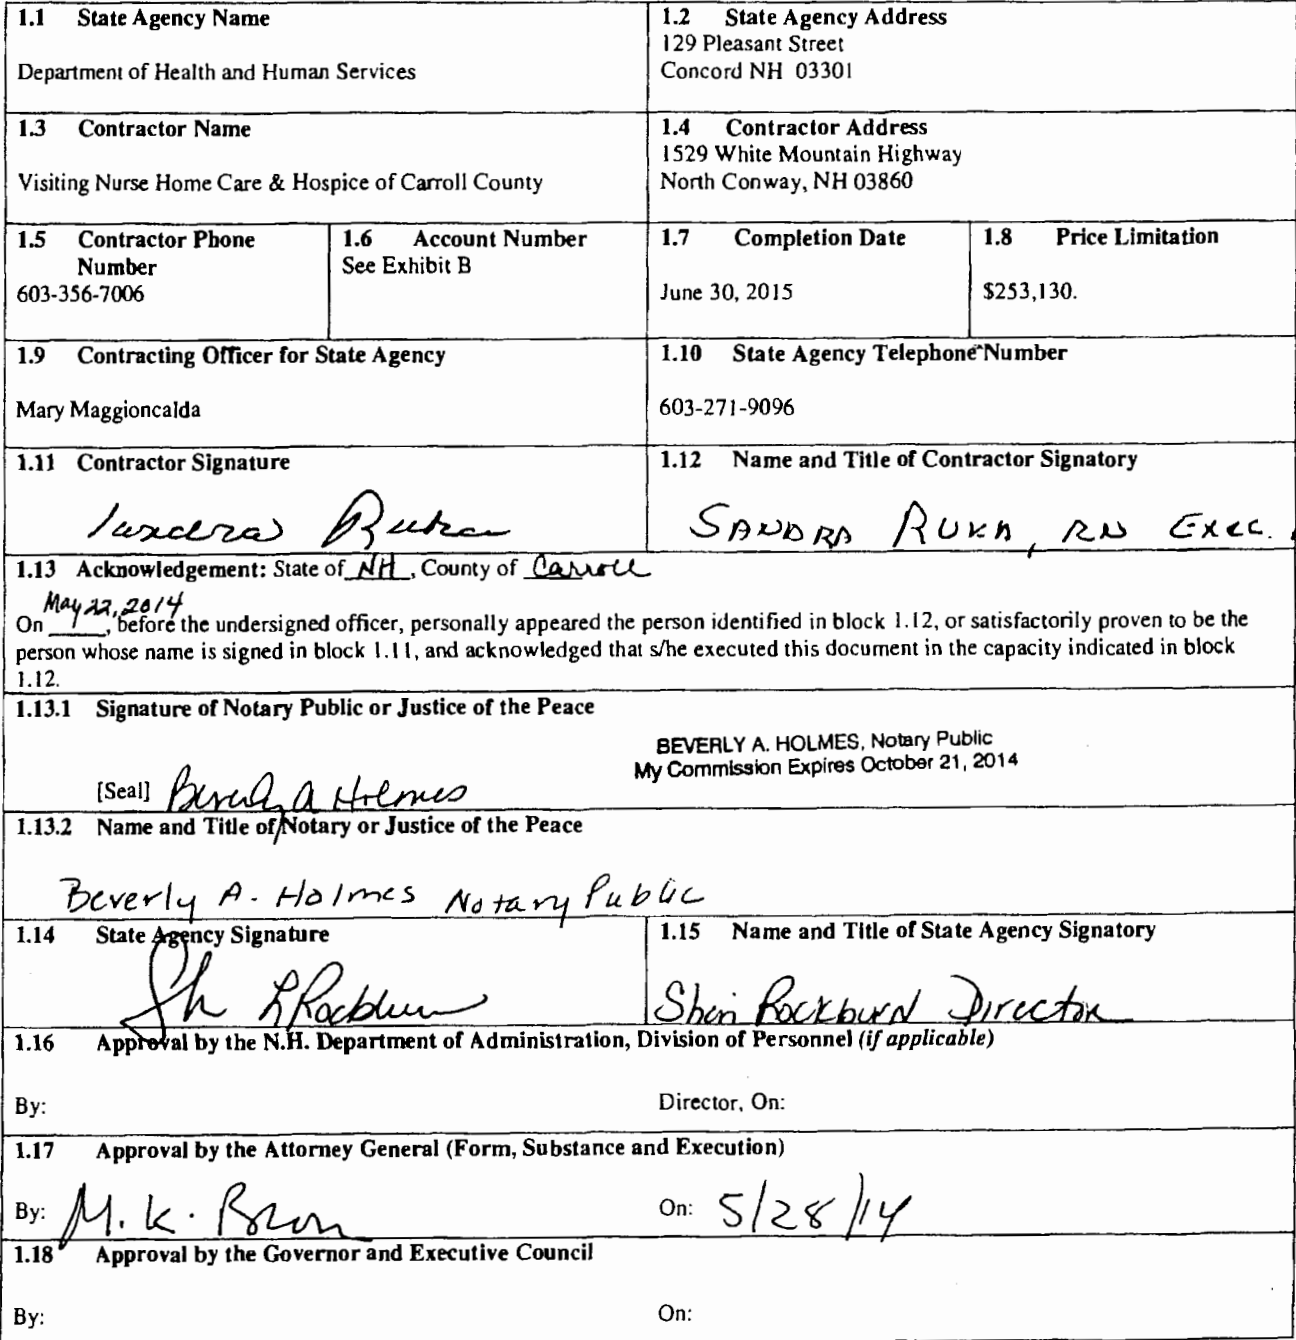 1.1 State Agency Name
Department of Health and Human Services
1.2 State Agency Address
129 Pleasant Street
Concord NH 03301
1.3 Contractor Name
Visiting Nurse Home Care & Hospice of Carroll County
1.4 Contractor Address
1529 White Mountain Highway
North Conway, NH 03860
1.5 Contractor Phone
Number
603-356-7006
1.6 Account Number
See Exhibit B
1.7 Completion Date
June 30, 2015
1.8 Price Limitation
$253,130.
1.9 Contracting Officer for State Agency
Mary Maggioncalda
1.10 State Agency Telephone Number
603-271-9096
1.11 Contractor Signature
Ruka
1.12 Name and Title of Contractor Signatory
SANDRA RUKA, RN EXEC.
1.13 Acknowledgement: State of NH, County of Carroll
May 22, 2014
On , before the undersigned officer, personally appeared the person identified in block 1.12, or satisfactorily proven to be the
person whose name is signed in block 1.11, and acknowledged that s/he executed this document in the capacity indicated in block
1.12.
1.13.1 Signature of Notary Public or Justice of the Peace
BEVERLY A. HOLMES, Notary Public
My Commission Expires October 21, 2014
[Seal] Beverly A Holmes
1.13.2 Name and Title of Notary or Justice of the Peace
Beverly A. Holmes Notary Public
1.14 State Agency Signature
1.15 Name and Title of State Agency Signatory
Sheri Rockburn Director
1.16 Approval by the N.H. Department of Administration, Division of Personnel (if applicable)
By: Director, On:
1.17 Approval by the Attorney General (Form, Substance and Execution)
By: M. K. On: 5/28/14
1.18 Approval by the Governor and Executive Council
By: On: